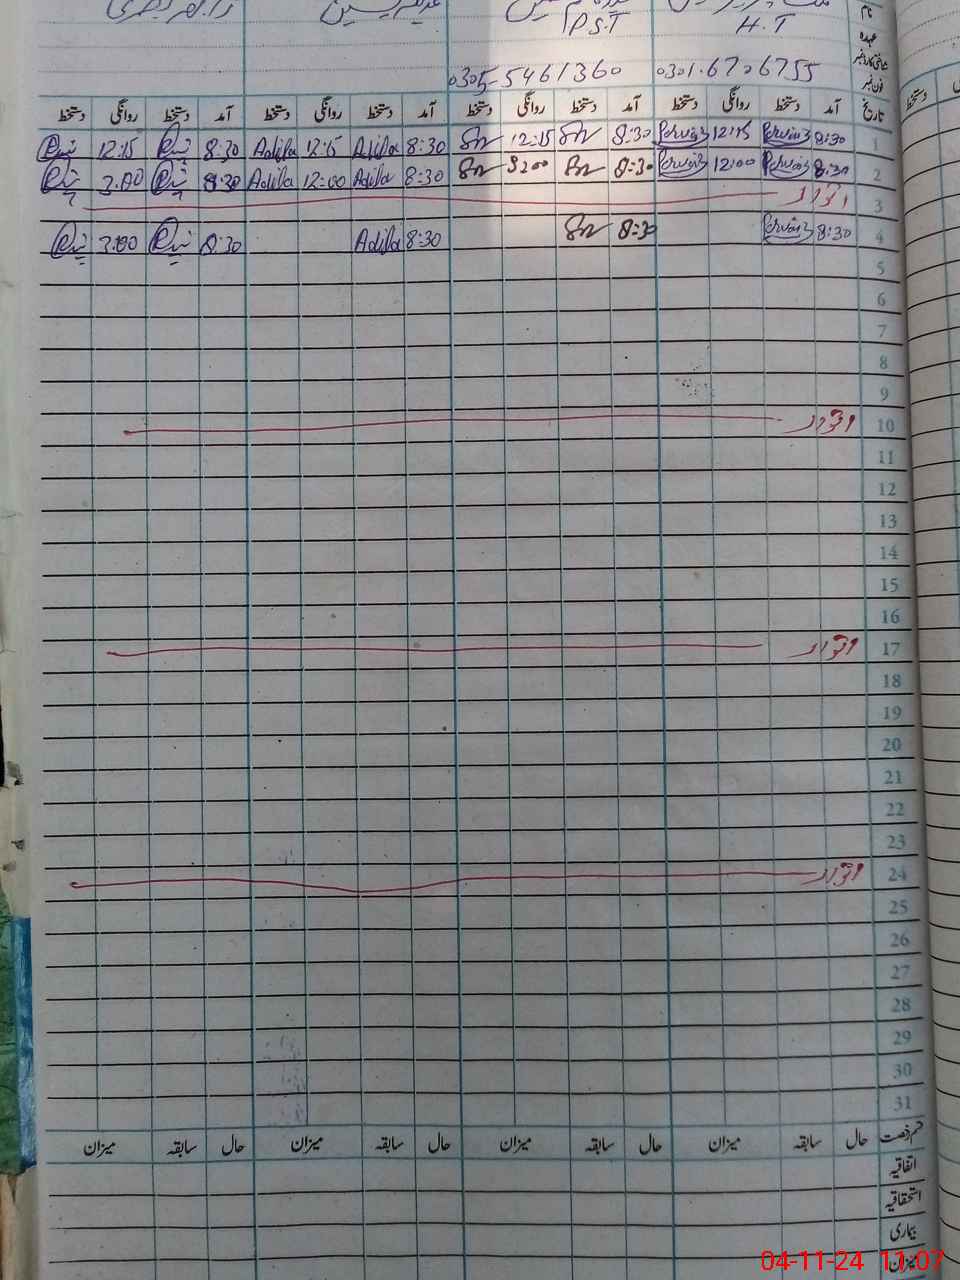 P.S.T H.T
0305-5461360 0301.6706755
تاریخ آمد دستخط روانگی دستخط آمد دستخط روانگی دستخط آمد دستخط روانگی دستخط آمد دستخط روانگی دستخط
1 8:30 Pervaiz 12:15 Pervaiz 8:30 12:15 8:30 Adila 12:15 Adila 8:30 12:15
2 8:30 Pervaiz 12:00 Pervaiz 8:30 8:30 Adila 12:00 Adila 8:30 3:00
3 اتوار
4 8:30 Pervaiz 8:30 8:30 Adila 8:30 3:00
5
6
7
8
9
10 اتوار
11
12
13
14
15
16
17 اتوار
18
19
20
21
22
23
24 اتوار
25
26
27
28
29
30
31
قسم رخصت حال سابقہ میزان حال سابقہ میزان حال سابقہ میزان حال سابقہ میزان
اتفاقیہ
استحقاقیہ
بیماری
میزان
04-11-24 11:07